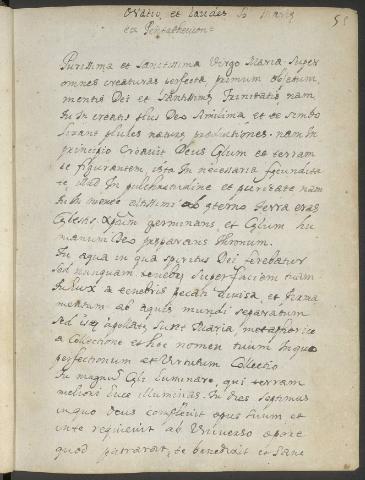 Oratio, et laudes B. Mariæ 55
ex Pentatheucon=
Purissima et Sanctissima Virgo Maria. Super
omnes creaturas perfecta primum obiectum
mentis Dei et Sanctissimæ Trinitatis nam
tu in creatis plus Deo similima et te simbo
lizant plures naturæ productiones. nam in
principio Creavit Deus Cælum et terram
te figurantem, ista in necessaria fecundita
te, Illud in pulchritudine et puritate nam
tu in mente altissimi ab æterno terra eras
Cælestis Xpum germinans, et Cælum hu
manum Deo præparans thronum.
Tu aqua in qua spiritus Dei ferebatur
sed nunquam tenebræ super faciem tuam
Tu lux a tenebris peccati divisa, et firma
mentum ab aquis mundi separatum
sed aquæ Sunt Maria, metaphorice
a Collectione et hoc nomen tuum in quo
perfectionum et Virtutum Collectio
Tu magnum Cæli luminare, qui terram
meliori luce illuminas. Tu dies septimus
in quo Deus complevit opus suum et
in te requievit ab Universo opere
quod patrarat, te benedixit et Sanc